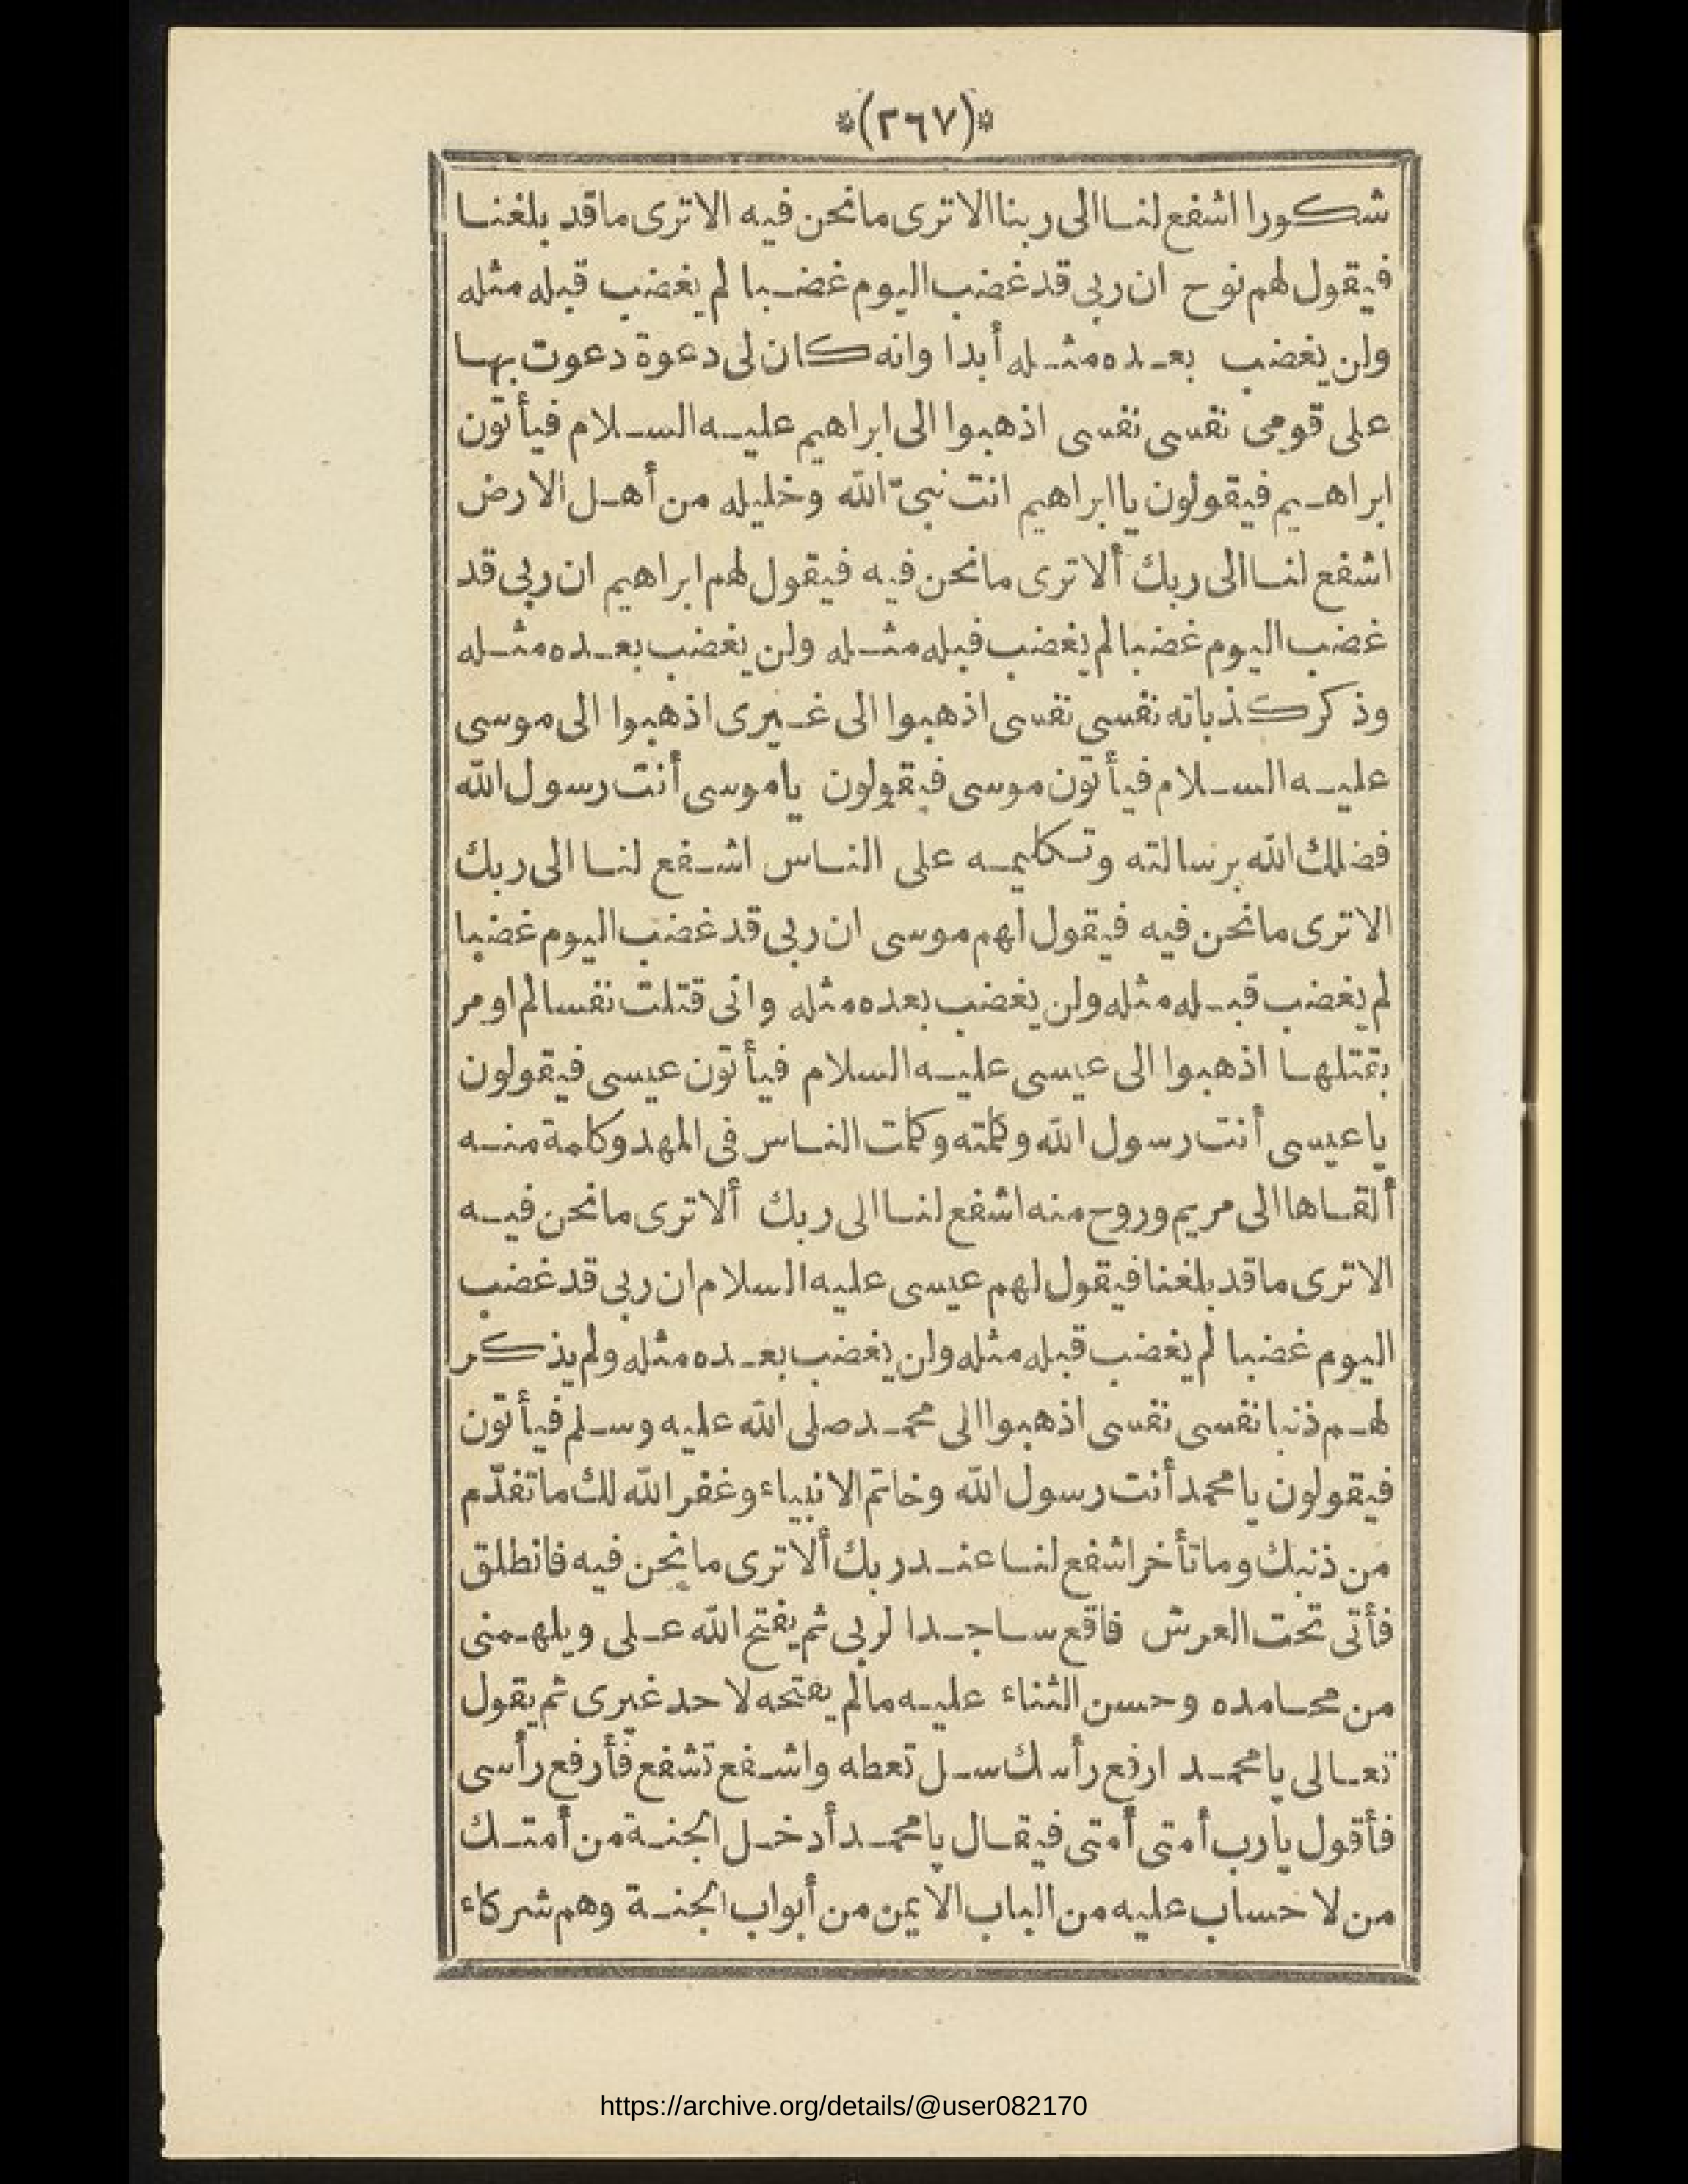 *(٢٦٧)*
شكورا اشفع لنا الى ربنا الا ترى ما نحن فيه الا ترى ما قد بلغنا
فيقول لهم نوح ان ربى قد غضب اليوم غضبا لم يغضب قبله مثله
ولن يغضب بعده مثله أبدا وانه كان لى دعوة دعوت بها
على قومى نفسى نفسى اذهبوا الى ابراهيم عليه السلام فيأتون
ابراهيم فيقولون يا ابراهيم انت نبىّ الله وخليله من أهل الارض
اشفع لنا الى ربك ألا ترى ما نحن فيه فيقول لهم ابراهيم ان ربى قد
غضب اليوم غضبا لم يغضب قبله مثله ولن يغضب بعده مثله
وذكر كذباته نفسى نفسى اذهبوا الى غيرى اذهبوا الى موسى
عليه السلام فيأتون موسى فيقولون ياموسى أنت رسول الله
فضلك الله برسالته وتكليمه على الناس اشفع لنا الى ربك
الا ترى ما نحن فيه فيقول لهم موسى ان ربى قد غضب اليوم غضبا
لم يغضب قبله مثله ولن يغضب بعده مثله وانى قتلت نفسا لم اومر
بقتلها اذهبوا الى عيسى عليه السلام فيأتون عيسى فيقولون
يا عيسى أنت رسول الله وكلمته وكلمت الناس فى المهد وكلمة منه
ألقاها الى مريم وروح منه اشفع لنا الى ربك ألا ترى ما نحن فيه
الا ترى ما قد بلغنا فيقول لهم عيسى عليه السلام ان ربى قد غضب
اليوم غضبا لم يغضب قبله مثله ولن يغضب بعده مثله ولم يذكر
لهم ذنبا نفسى نفسى اذهبوا الى محمد صلى الله عليه وسلم فيأتون
فيقولون يا محمد أنت رسول الله وخاتم الانبياء وغفر الله لك ما تقدّم
من ذنبك وما تأخر اشفع لنا عند ربك ألا ترى ما نحن فيه فانطلق
فأتى تحت العرش فاقع ساجدا لربى ثم يفتح الله على ويلهمنى
من محامده وحسن الثناء عليه مالم يفتحه لاحد غيرى ثم يقول
تعالى يا محمد ارفع رأسك سل تعطه واشفع تشفع فأرفع رأسى
فأقول يارب أمتى أمتى فيقال يا محمد أدخل الجنة من أمتك
من لا حساب عليه من الباب الايمن من أبواب الجنة وهم شركاء
https://archive.org/details/@user082170